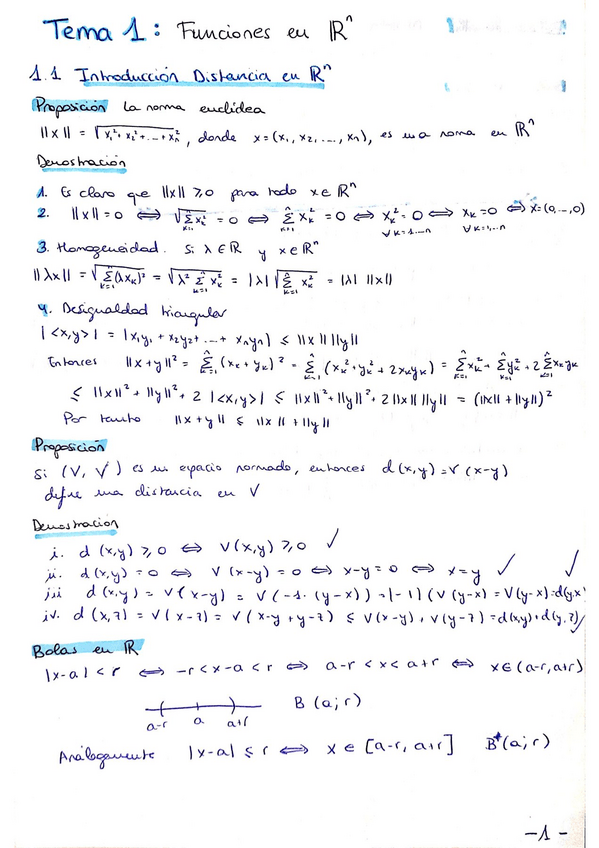 Tema 1: Funciones en ℝⁿ
1.1 Introducción Distancia en ℝⁿ
Proposición La norma euclídea
||x|| = √(x₁² + x₂² + ... + xₙ²), donde x = (x₁, x₂, ..., xₙ), es una norma en ℝⁿ
Demostración
1. Es claro que ||x|| ≥ 0 para todo x ∈ ℝⁿ
2. ||x|| = 0 ⟺ √(Σₖ₌₁ⁿ xₖ²) = 0 ⟺ Σₖ₌₁ⁿ xₖ² = 0 ⟺ xₖ² = 0 ∀k=1...n ⟺ xₖ = 0 ∀k=1,...n ⟺ x = (0,...,0)
3. Homogeneidad. Si λ ∈ ℝ y x ∈ ℝⁿ
||λx|| = √(Σₖ₌₁ⁿ (λxₖ)²) = √(λ² Σₖ₌₁ⁿ xₖ²) = |λ| √(Σₖ₌₁ⁿ xₖ²) = |λ| ||x||
4. Desigualdad triangular
|<x,y>| = |x₁y₁ + x₂y₂ + ... + xₙyₙ| ≤ ||x|| ||y||
Entonces ||x+y||² = Σₖ₌₁ⁿ (xₖ + yₖ)² = Σₖ₌₁ⁿ (xₖ² + yₖ² + 2xₖyₖ) = Σₖ₌₁ⁿ xₖ² + Σₖ₌₁ⁿ yₖ² + 2 Σₖ₌₁ⁿ xₖyₖ
≤ ||x||² + ||y||² + 2 |<x,y>| ≤ ||x||² + ||y||² + 2||x|| ||y|| = (||x|| + ||y||)²
Por tanto ||x+y|| ≤ ||x|| + ||y||
Proposición
Si (V, V) es un espacio normado, entonces d(x,y) = V(x-y)
define una distancia en V
Demostración
i. d(x,y) ≥ 0 ⟺ V(x,y) ≥ 0 ✓
ii. d(x,y) = 0 ⟺ V(x-y) = 0 ⟺ x-y = 0 ⟺ x = y ✓ ✓
iii d(x,y) = V(x-y) = V(-1·(y-x)) = |-1| (V(y-x) = V(y-x) = d(y,x)
iv. d(x,z) = V(x-z) = V(x-y+y-z) ≤ V(x-y) + V(y-z) = d(x,y) + d(y,z) ✓
Bolas en ℝ
|x-a| < r ⟺ -r < x-a < r ⟺ a-r < x < a+r ⟺ x ∈ (a-r, a+r)
B(a;r)
a-r a a+r
Análogamente |x-a| ≤ r ⟺ x ∈ [a-r, a+r] B*(a;r)
-1-